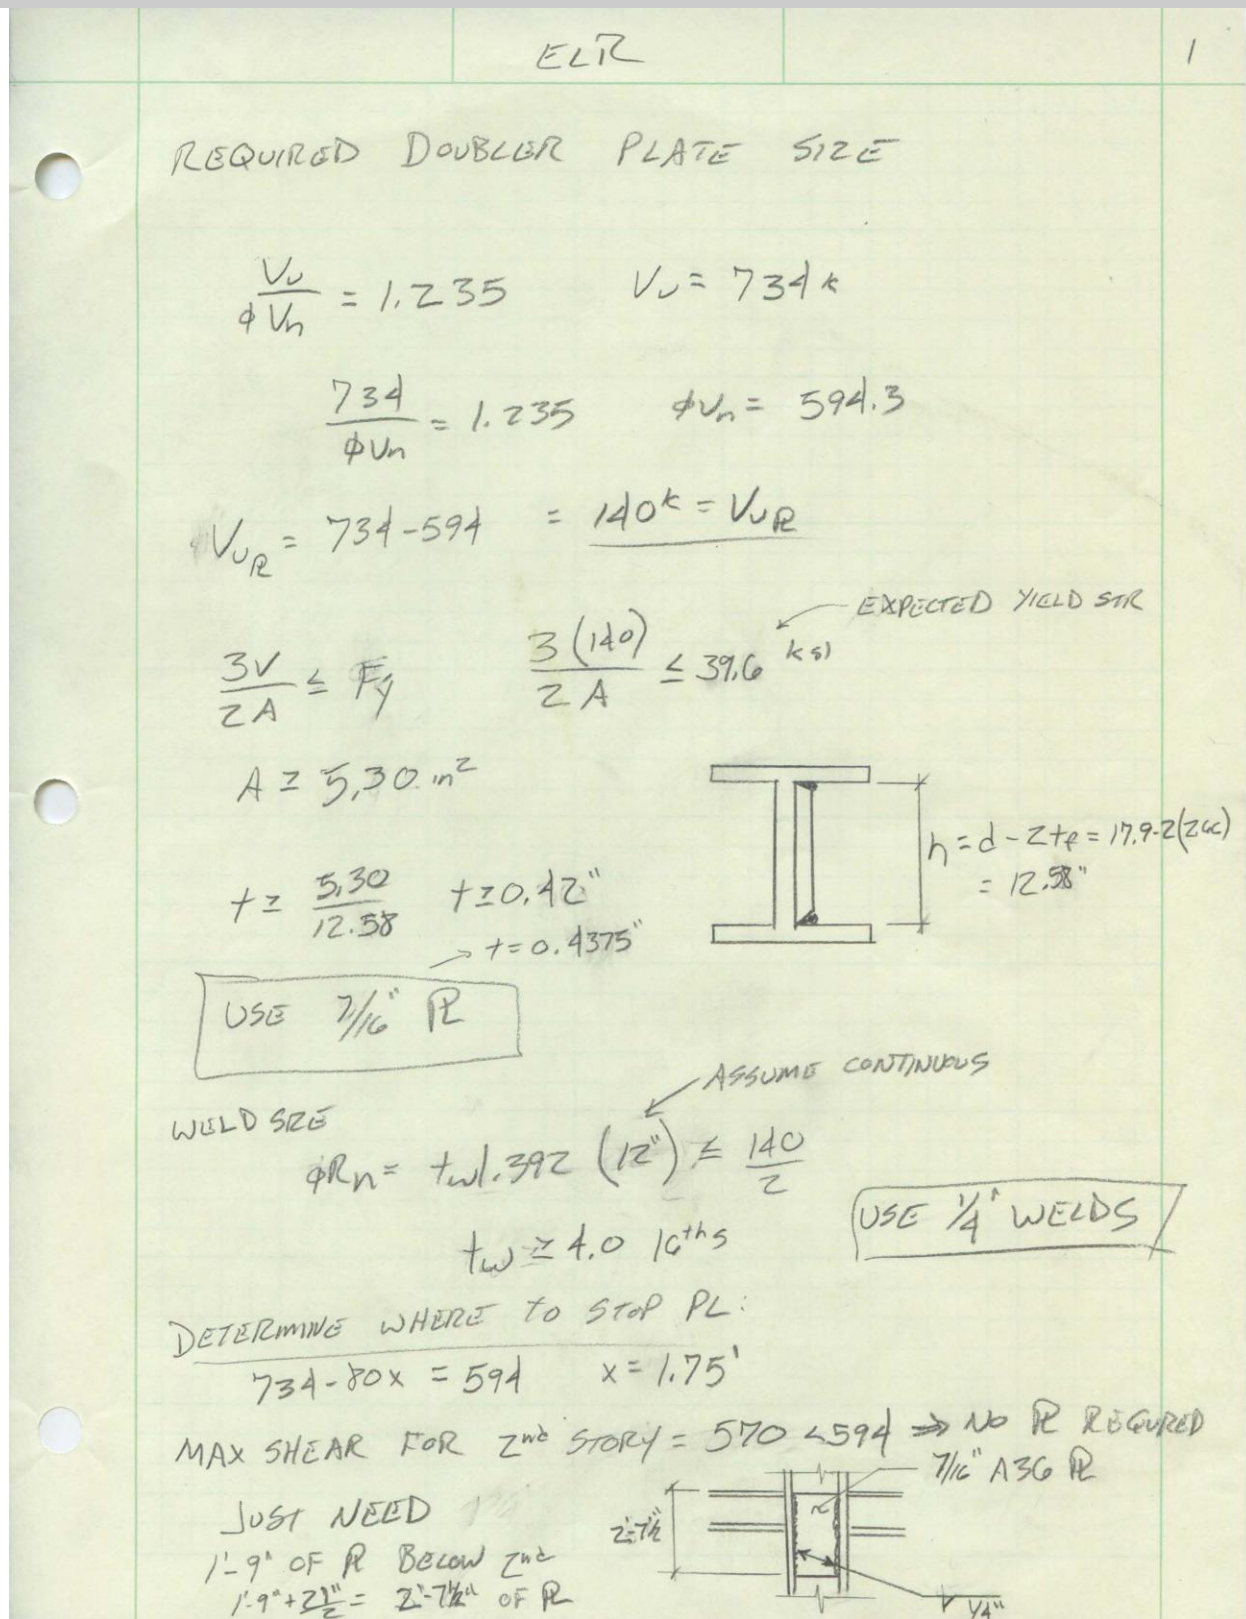 ELR 1
REQUIRED DOUBLER PLATE SIZE
Vu/φVn = 1.235 Vu = 734 k
734/φVn = 1.235 φVn = 594.3
Vu℄ = 734-594 = 140k = Vu℄
EXPECTED YIELD STR
3V/2A ≤ Fy 3(140)/2A ≤ 39.6 ksi
A ≥ 5.30 in²
h = d - 2tf = 17.9-2(2.66)
= 12.58"
t ≥ 5.30/12.58 t ≥ 0.42"
t = 0.4375"
USE 7/16" PL
ASSUME CONTINUOUS
WELD SIZE
φRn = tw1.392 (12") ≤ 140/2
USE 1/4" WELDS
tw ≥ 4.0 16ths
DETERMINE WHERE TO STOP PL:
734-80x = 594 x = 1.75'
MAX SHEAR FOR 2nd STORY = 570 < 594 ⇒ NO PL REQURED
7/16" A36 PL
JUST NEED
2'-7½"
1'-9" OF PL BELOW 2nd
1'-9"+21"/2 = 2'-7½" OF PL
1/4"